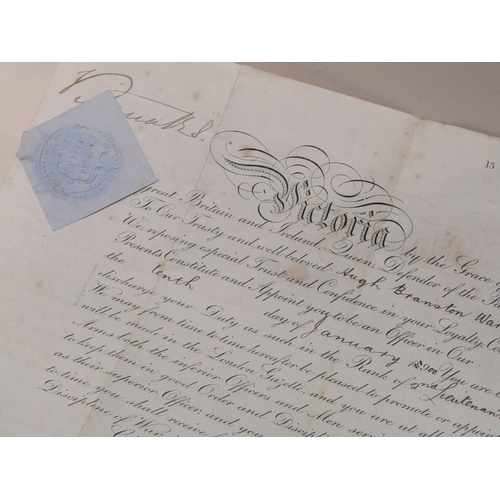 13
Victoria
by the Grace
Great Britain and Ireland, Queen, Defender of the
To Our Trusty and well beloved Hugh Branston
We, reposing especial Trust and Confidence in your Loyalty,
Presents Constitute and Appoint you to be an Officer in Our
the tenth day of January You are
discharge your Duty as such in the Rank of 2nd Lieutenant
We may from time to time hereafter be pleased to promote or appoint
will be made in the London Gazette, and you are at all
Arms both the inferior Officers and Men
to keep them in good Order and Discipline
as their superior Officer, and you
to time you shall receive
Discipline of War